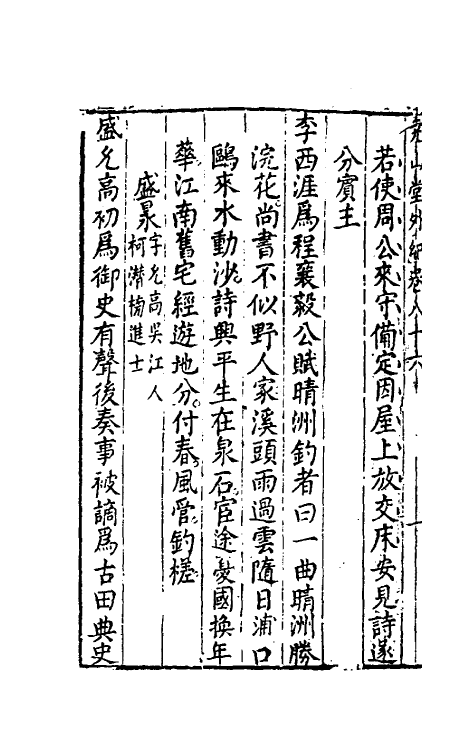 堯山堂外紀卷八十六
若使周公來守備定因屋上放交床安見詩遂
分賓主
李西涯爲程襄毅公賦晴洲釣者曰一曲晴洲勝
浣花尚書不似野人家溪頭雨過雲隨日浦口
鷗來水動沙詩興平生在泉石宦途憂國換年
華江南舊宅經遊地分付春風管釣槎
盛㫤字允高吳江人
柯潛榜進士
盛允高初爲御史有聲後奏事被謫爲古田典史